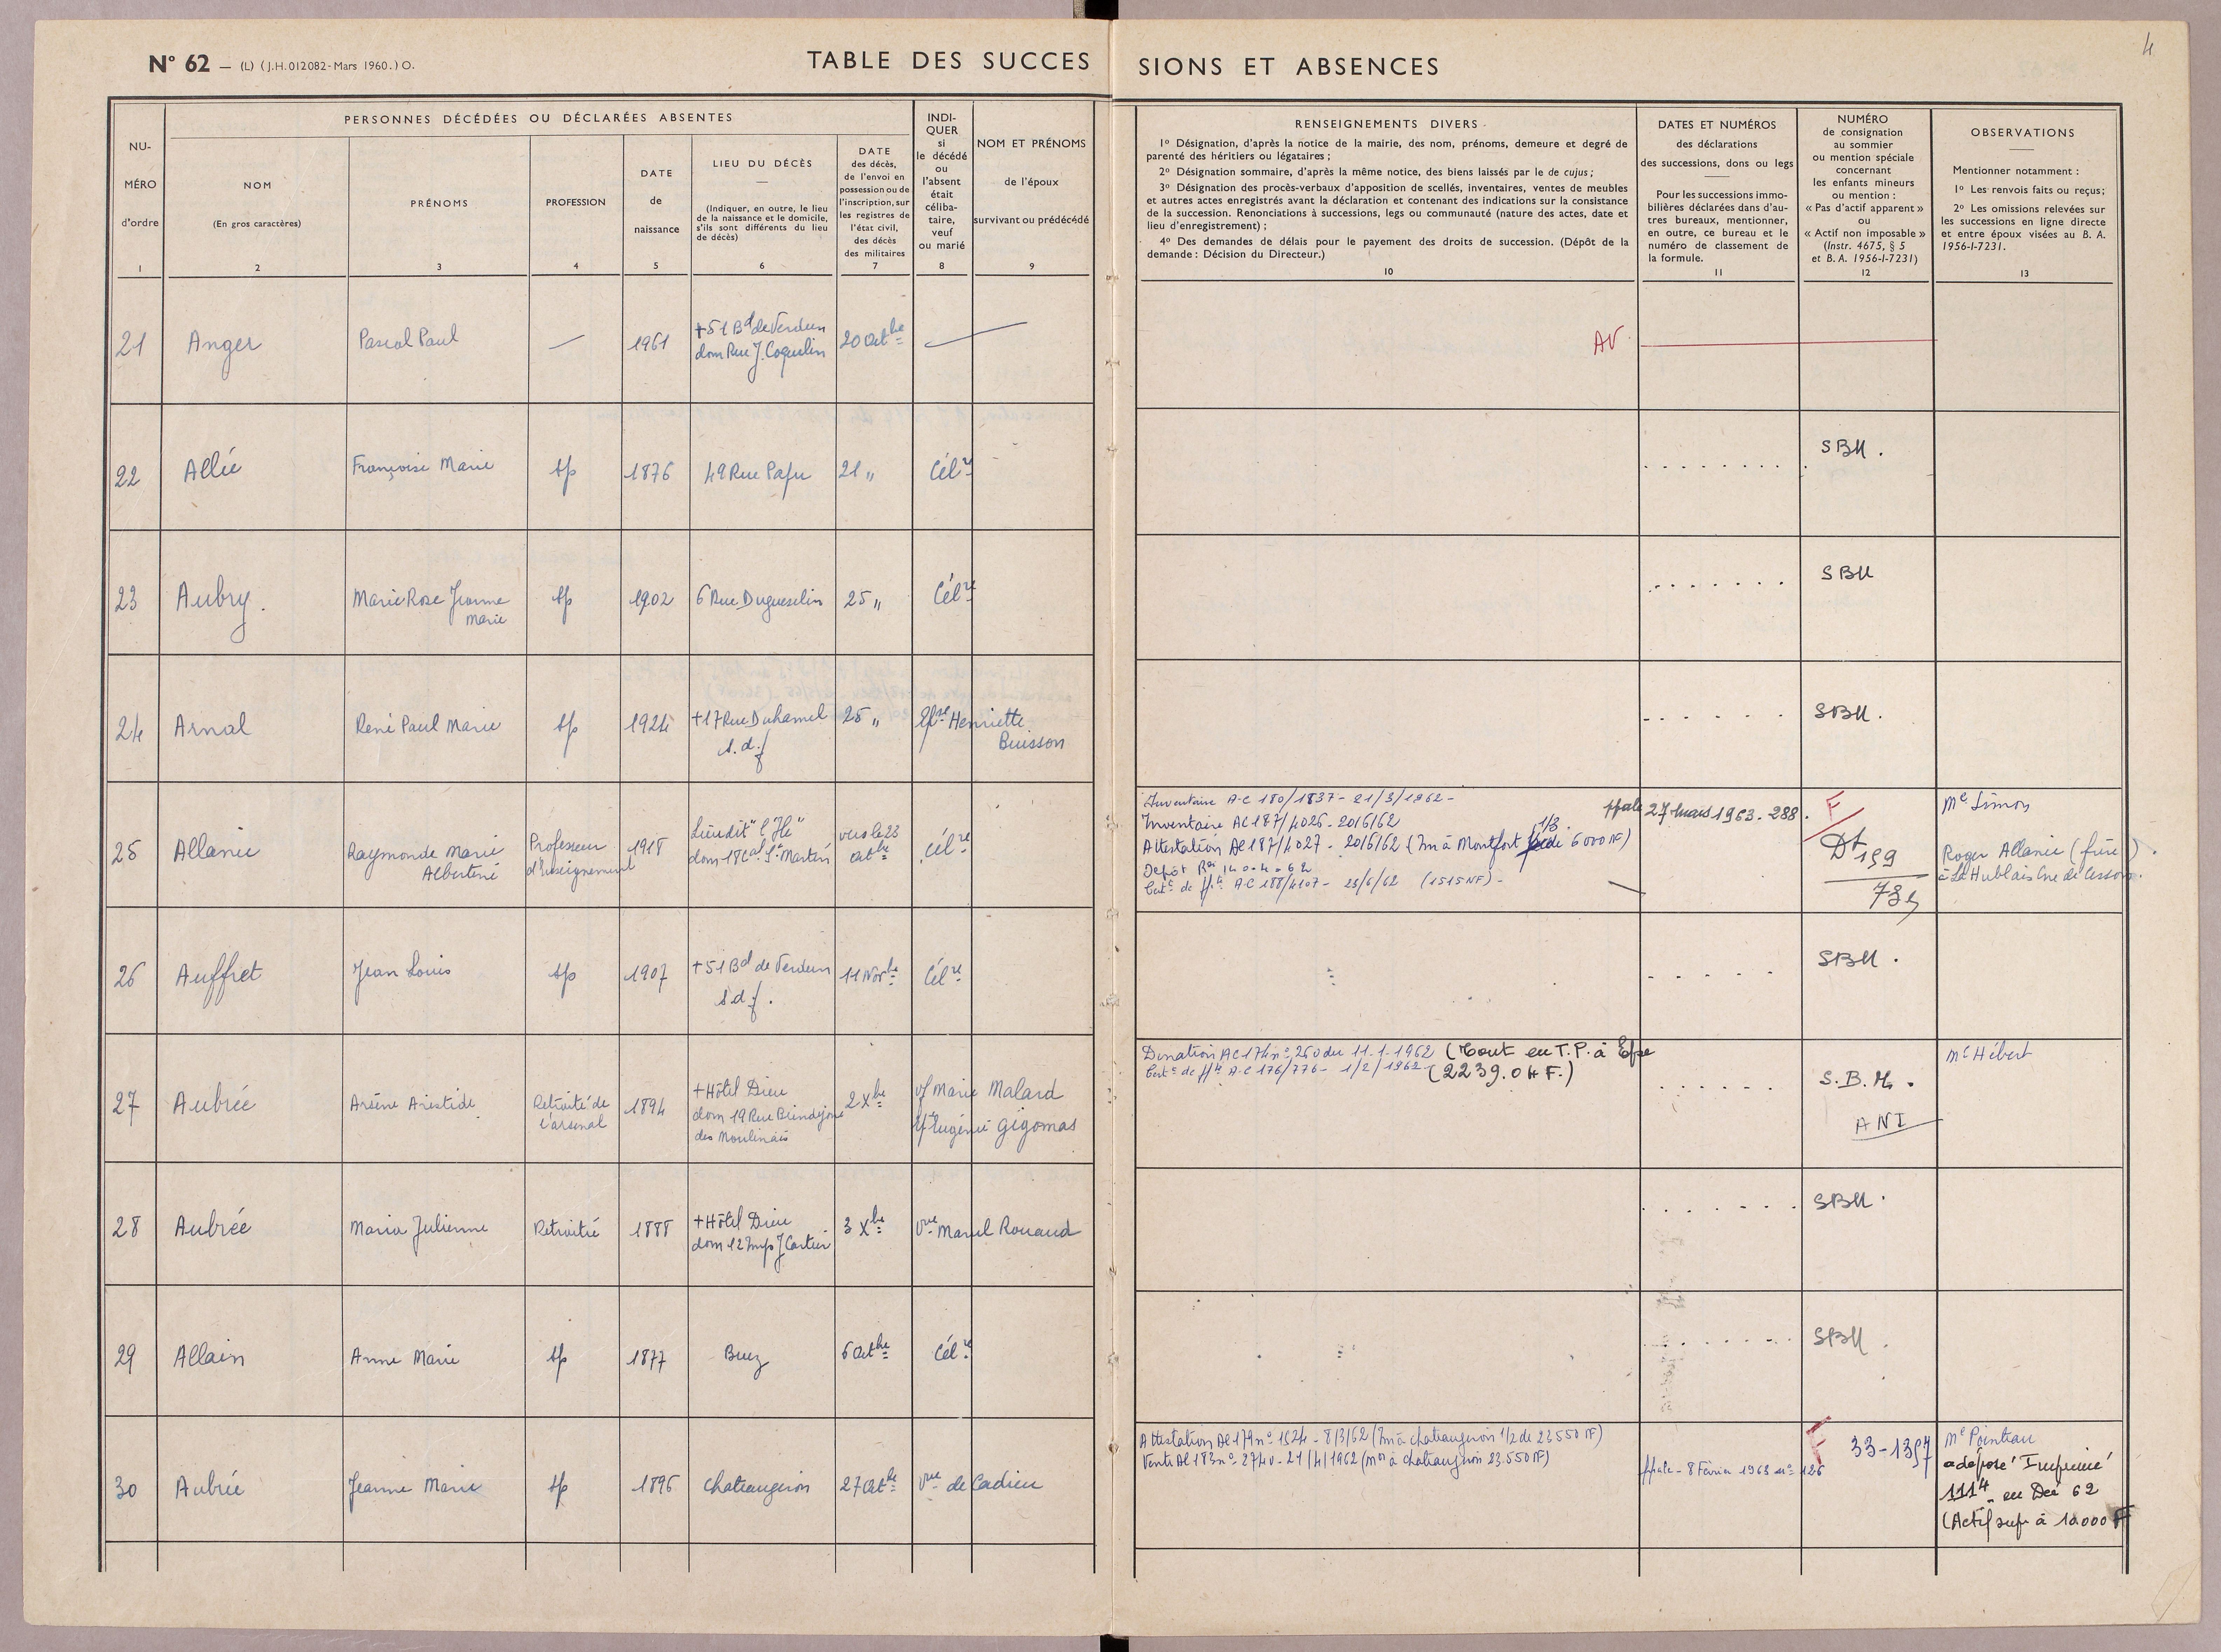 4
N° 62 — (L) (J.H. 012082 - Mars 1960.) O.
TABLE DES SUCCESSIONS ET ABSENCES
NU-
MÉRO
d'ordre
1
PERSONNES DÉCÉDÉES OU DÉCLARÉES ABSENTES
NOM
(En gros caractères)
2
PRÉNOMS
3
PROFESSION
4
DATE
de
naissance
5
LIEU DU DÉCÈS
(Indiquer, en outre, le lieu
de la naissance et le domicile,
s'ils sont différents du lieu
de décès)
6
DATE
des décès,
de l'envoi en
possession ou de
l'inscription, sur
les registres de
l'état civil,
des décès
des militaires
7
INDI-
QUER
si
le décédé
ou
l'absent
était
céliba-
taire,
veuf
ou marié
8
NOM ET PRÉNOMS
de l'époux
survivant ou prédécédé
9
RENSEIGNEMENTS DIVERS
1° Désignation, d'après la notice de la mairie, des nom, prénoms, demeure et degré de
parenté des héritiers ou légataires ;
2° Désignation sommaire, d'après la même notice, des biens laissés par le de cujus ;
3° Désignation des procès-verbaux d'apposition de scellés, inventaires, ventes de meubles
et autres actes enregistrés avant la déclaration et contenant des indications sur la consistance
de la succession. Renonciations à successions, legs ou communauté (nature des actes, date et
lieu d'enregistrement) ;
4° Des demandes de délais pour le payement des droits de succession. (Dépôt de la
demande : Décision du Directeur.)
10
DATES ET NUMÉROS
des déclarations
des successions, dons ou legs
Pour les successions immo-
bilières déclarées dans d'au-
tres bureaux, mentionner,
en outre, ce bureau et le
numéro de classement de
la formule.
11
NUMÉRO
de consignation
au sommier
ou mention spéciale
concernant
les enfants mineurs
ou mention :
« Pas d'actif apparent »
ou
« Actif non imposable »
(Instr. 4675, § 5
et B. A. 1956-I-7231)
12
OBSERVATIONS
Mentionner notamment :
1° Les renvois faits ou reçus ;
2° Les omissions relevées sur
les successions en ligne directe
et entre époux visées au B. A.
1956-I-7231.
13
21 Anger Pascal Paul — 1961 +51 Bd de Verdun 20 Octbre — AV
dom Rue J. Coquelin
22 Allée Françoise Marie sp 1876 49 Rue Papu 21 " Célre SBM.
23 Aubry. Marie Rose Jeanne sp 1902 6 Rue Duguesclin 25 " Célre SBM
Marie
24 Arnal René Paul Marie sp 1924 +17 Rue Duhamel 25 " Epse Henriette SBM.
s.d.f Buisson
25 Allanic Raymonde Marie Professeur 1918 Lieudit "l'Ile" vers le 23 célre
Albertine d'Enseignement octbre
Inventaire A.C 180/1837 - 21/3/1962 -
Inventaire AC 187/4026 - 20/6/62
Attestation AC 187/4027 - 20/6/62 (Im à Montfort 1/3 de 6000 NF)
Certt de ppté A.C 188/4107 - 25/6/62 (1515 NF) -
ppale 27 mars 1963. 288.
F
Dt 159
Me Simon
Roger Allanic (frère)
26 Auffret Jean Louis sp 1907 +51 Bd de Verdun 11 Novbre Célre SBM.
s.d.f.
27 Aubrée Arsène Aristide Retraité de 1894 +Hôtel Dieu 2 Xbre vf Marie Malard
l'arsenal dom 19 Rue Brindejonc Eugénie Gigomas
des Moulinais
Donation AC 174 n° 260 du 11-1-1962 (Tout en T.P. à Epse
Certt de ppté A.C 176/776 - 1/2/1962 - (2239.04 F.)
S.B.M.
ANI
Me Hébert
28 Aubrée Maria Julienne Retraitée 1888 +Hôtel Dieu 3 Xbre vve Marcel Rouaud SBM.
dom 12 Imp J Cartier
29 Allain Anne Marie sp 1877 Bruz 6 Octbre Célre SBM.
30 Aubrée Jeanne Marie sp 1896 Chateaugiron 27 Octbre vve de Cadieu
Attestation AC 179 n° 1524 - 8/3/62 (Im à chateaugiron 1/2 de 23550 NF)
Vente AC 183 n° 2740 - 21/4/1962 (mon à chateaugiron 23.550 NF)
ppale - 8 Février 1963 n° 126
F 33-1357
Me Pointeau
a déposé Imprimé
111 4 en Déc 62
(Actif sup à 10.000 F